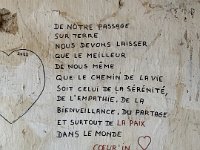 DE NÔTRE PASSAGE
SUR TERRE
NOUS DEVONS LAISSER
QUE LE MEILLEUR
DE NOUS MÊME
QUE LE CHEMIN DE LA VIE
SOIT CELUI DE LA SÉRÉNITÉ,
DE L'EMPATHIE, DE LA
BIENVEILLANCE, DU PARTAGE
ET SURTOUT DE LA PAIX
DANS LE MONDE
CŒUR IN